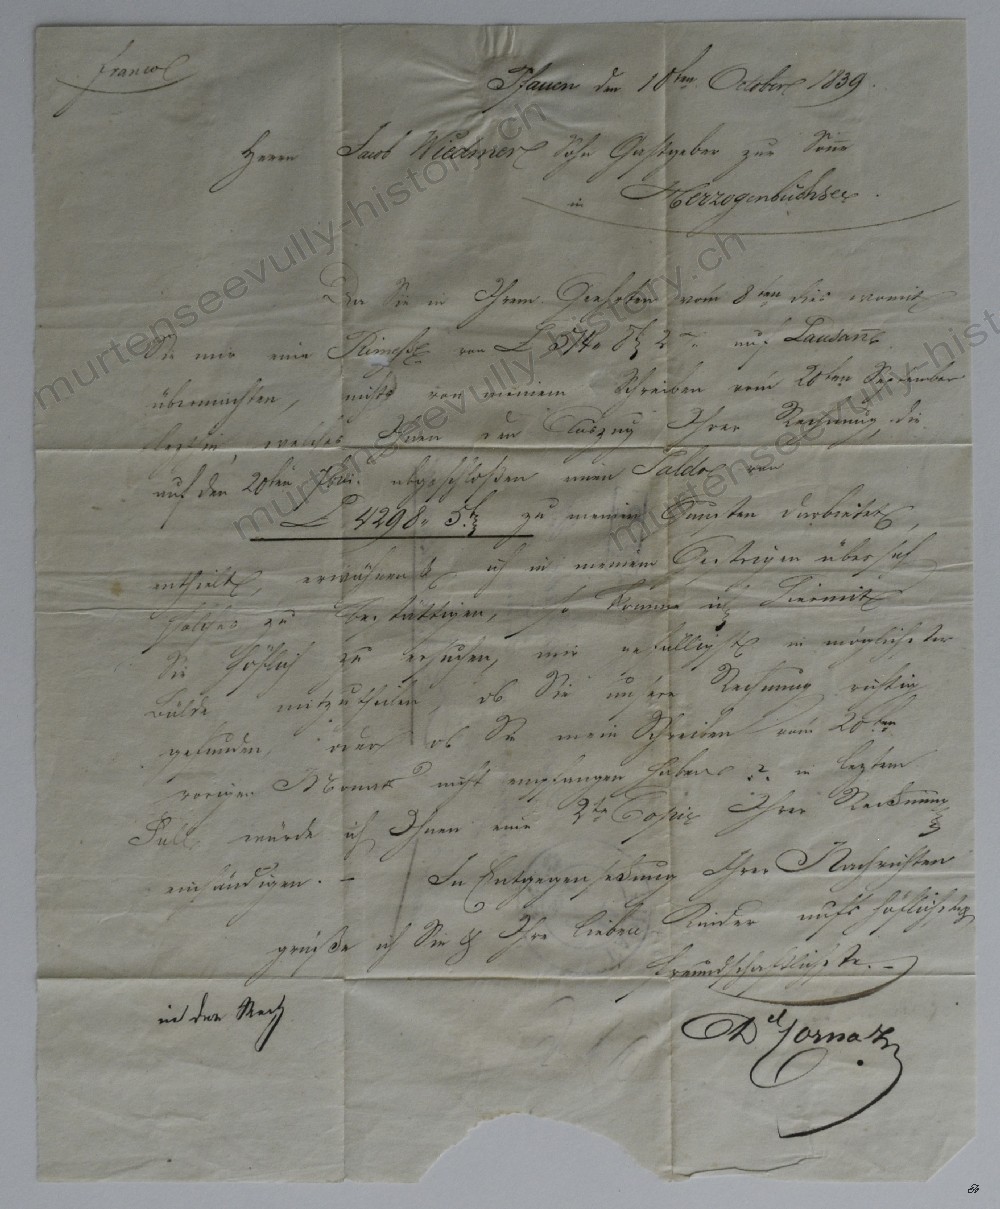 franco
Pfauen den 10ten October 1839.
Herrn Jacob Wiedmer Sohn Gastgeber zur Sonne
in Herzogenbuchsee.
Da Sie in Ihrem Geehrten vom 8ten dies womit
Sie mir eine Rimesse von L 574 „ 8 bz 2 rp auf Lausanne
übermachten, nichts von meinem Schreiben vom 20ten September
letzthin, welches Ihnen den Auszug Ihrer Rechnung, die
auf den 20ten 7bri. abgeschlossen einen Saldo von
L 4298 „ 5 bz zu meinen Gunsten darbietet,
enthielt, erwähnen & ich in meinem Gestrigen übersah
solches zu bestättigen, so komme ich hiermit
Sie höflich zu ersuchen, mir gefälligst in möglichster
Bälde mitzutheilen, ob Sie unsere Rechnung richtig
gefunden, oder ob Sie mein Schreiben vom 20ten
vorigen Monats nicht empfangen haben? in letztem
Falle würde ich Ihnen eine 2te Copie Ihrer Rechnung
einhändigen. – In Entgegensehung Ihrer Nachrichten
grüsse ich Sie & Ihre lieben Kinder aufs höflichste
Freundschaftlichste. –
in der
murtenseevully-history.ch
murtenseevully-history.ch
murtenseevully-history.ch